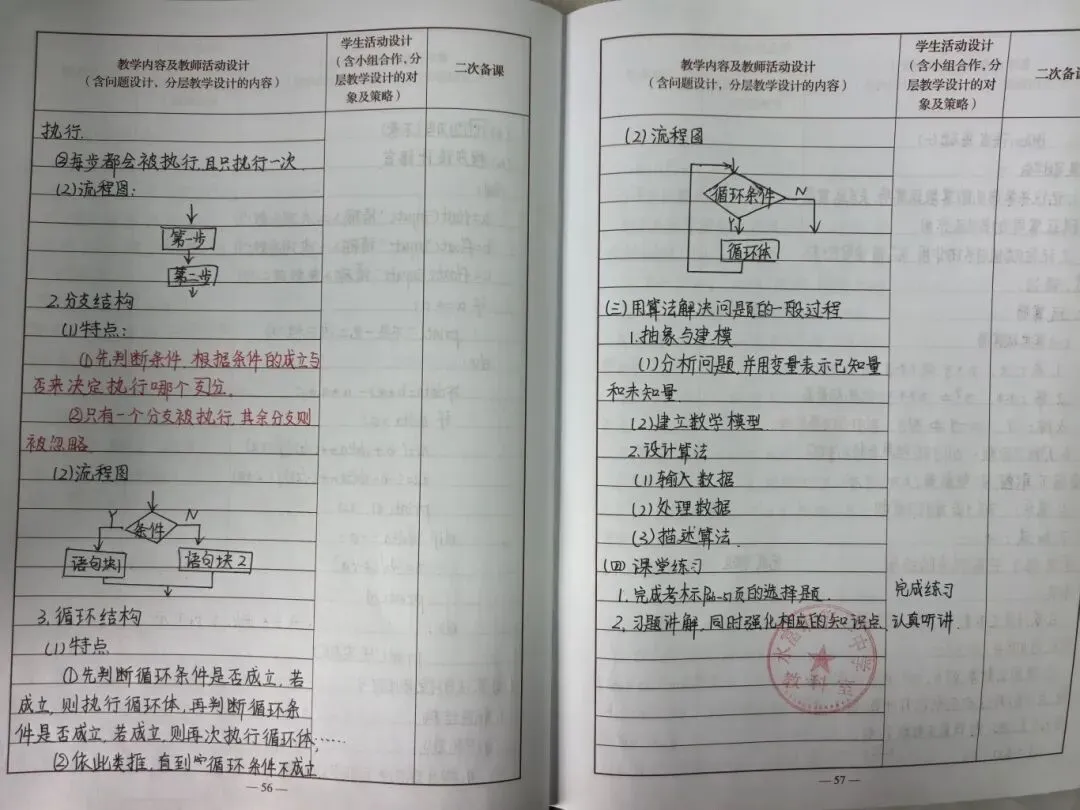 教学内容及教师活动设计
（含问题设计，分层教学设计的内容）
学生活动设计
（含小组合作，分
层教学设计的对
象及策略）
二次备课
执行.
②每步都会被执行,且只执行一次
(2)流程图:
第一步
第二步
2.分支结构
(1)特点:
①先判断条件,根据条件的成立与
否来决定执行哪个支分.
②只有一个分支被执行,其余分支则
被忽略
(2)流程图
Y 条件 N
语句块1 语句块2
3.循环结构
(1)特点
①先判断循环条件是否成立,若
成立,则执行循环体,再判断循环条
件是否成立,若成立,则再次执行循环体,……
②依此类推,直到循环条件不成立
— 56 —
教学内容及教师活动设计
（含问题设计，分层教学设计的内容）
学生活动设计
（含小组合作，分
层教学设计的对
象及策略）
二次备课
(2)流程图
循环条件 N
Y
循环体
(三)用算法解决问题的一般过程
1.抽象与建模
(1)分析问题,并用变量表示已知量
和未知量
(2)建立数学模型
2.设计算法
(1)输入数据
(2)处理数据
(3)描述算法.
(四)课堂练习
1.完成考标 页的选择题. 完成练习
2.习题讲解,同时强化相应的知识点. 认真听讲.
中学
教科室
— 57 —